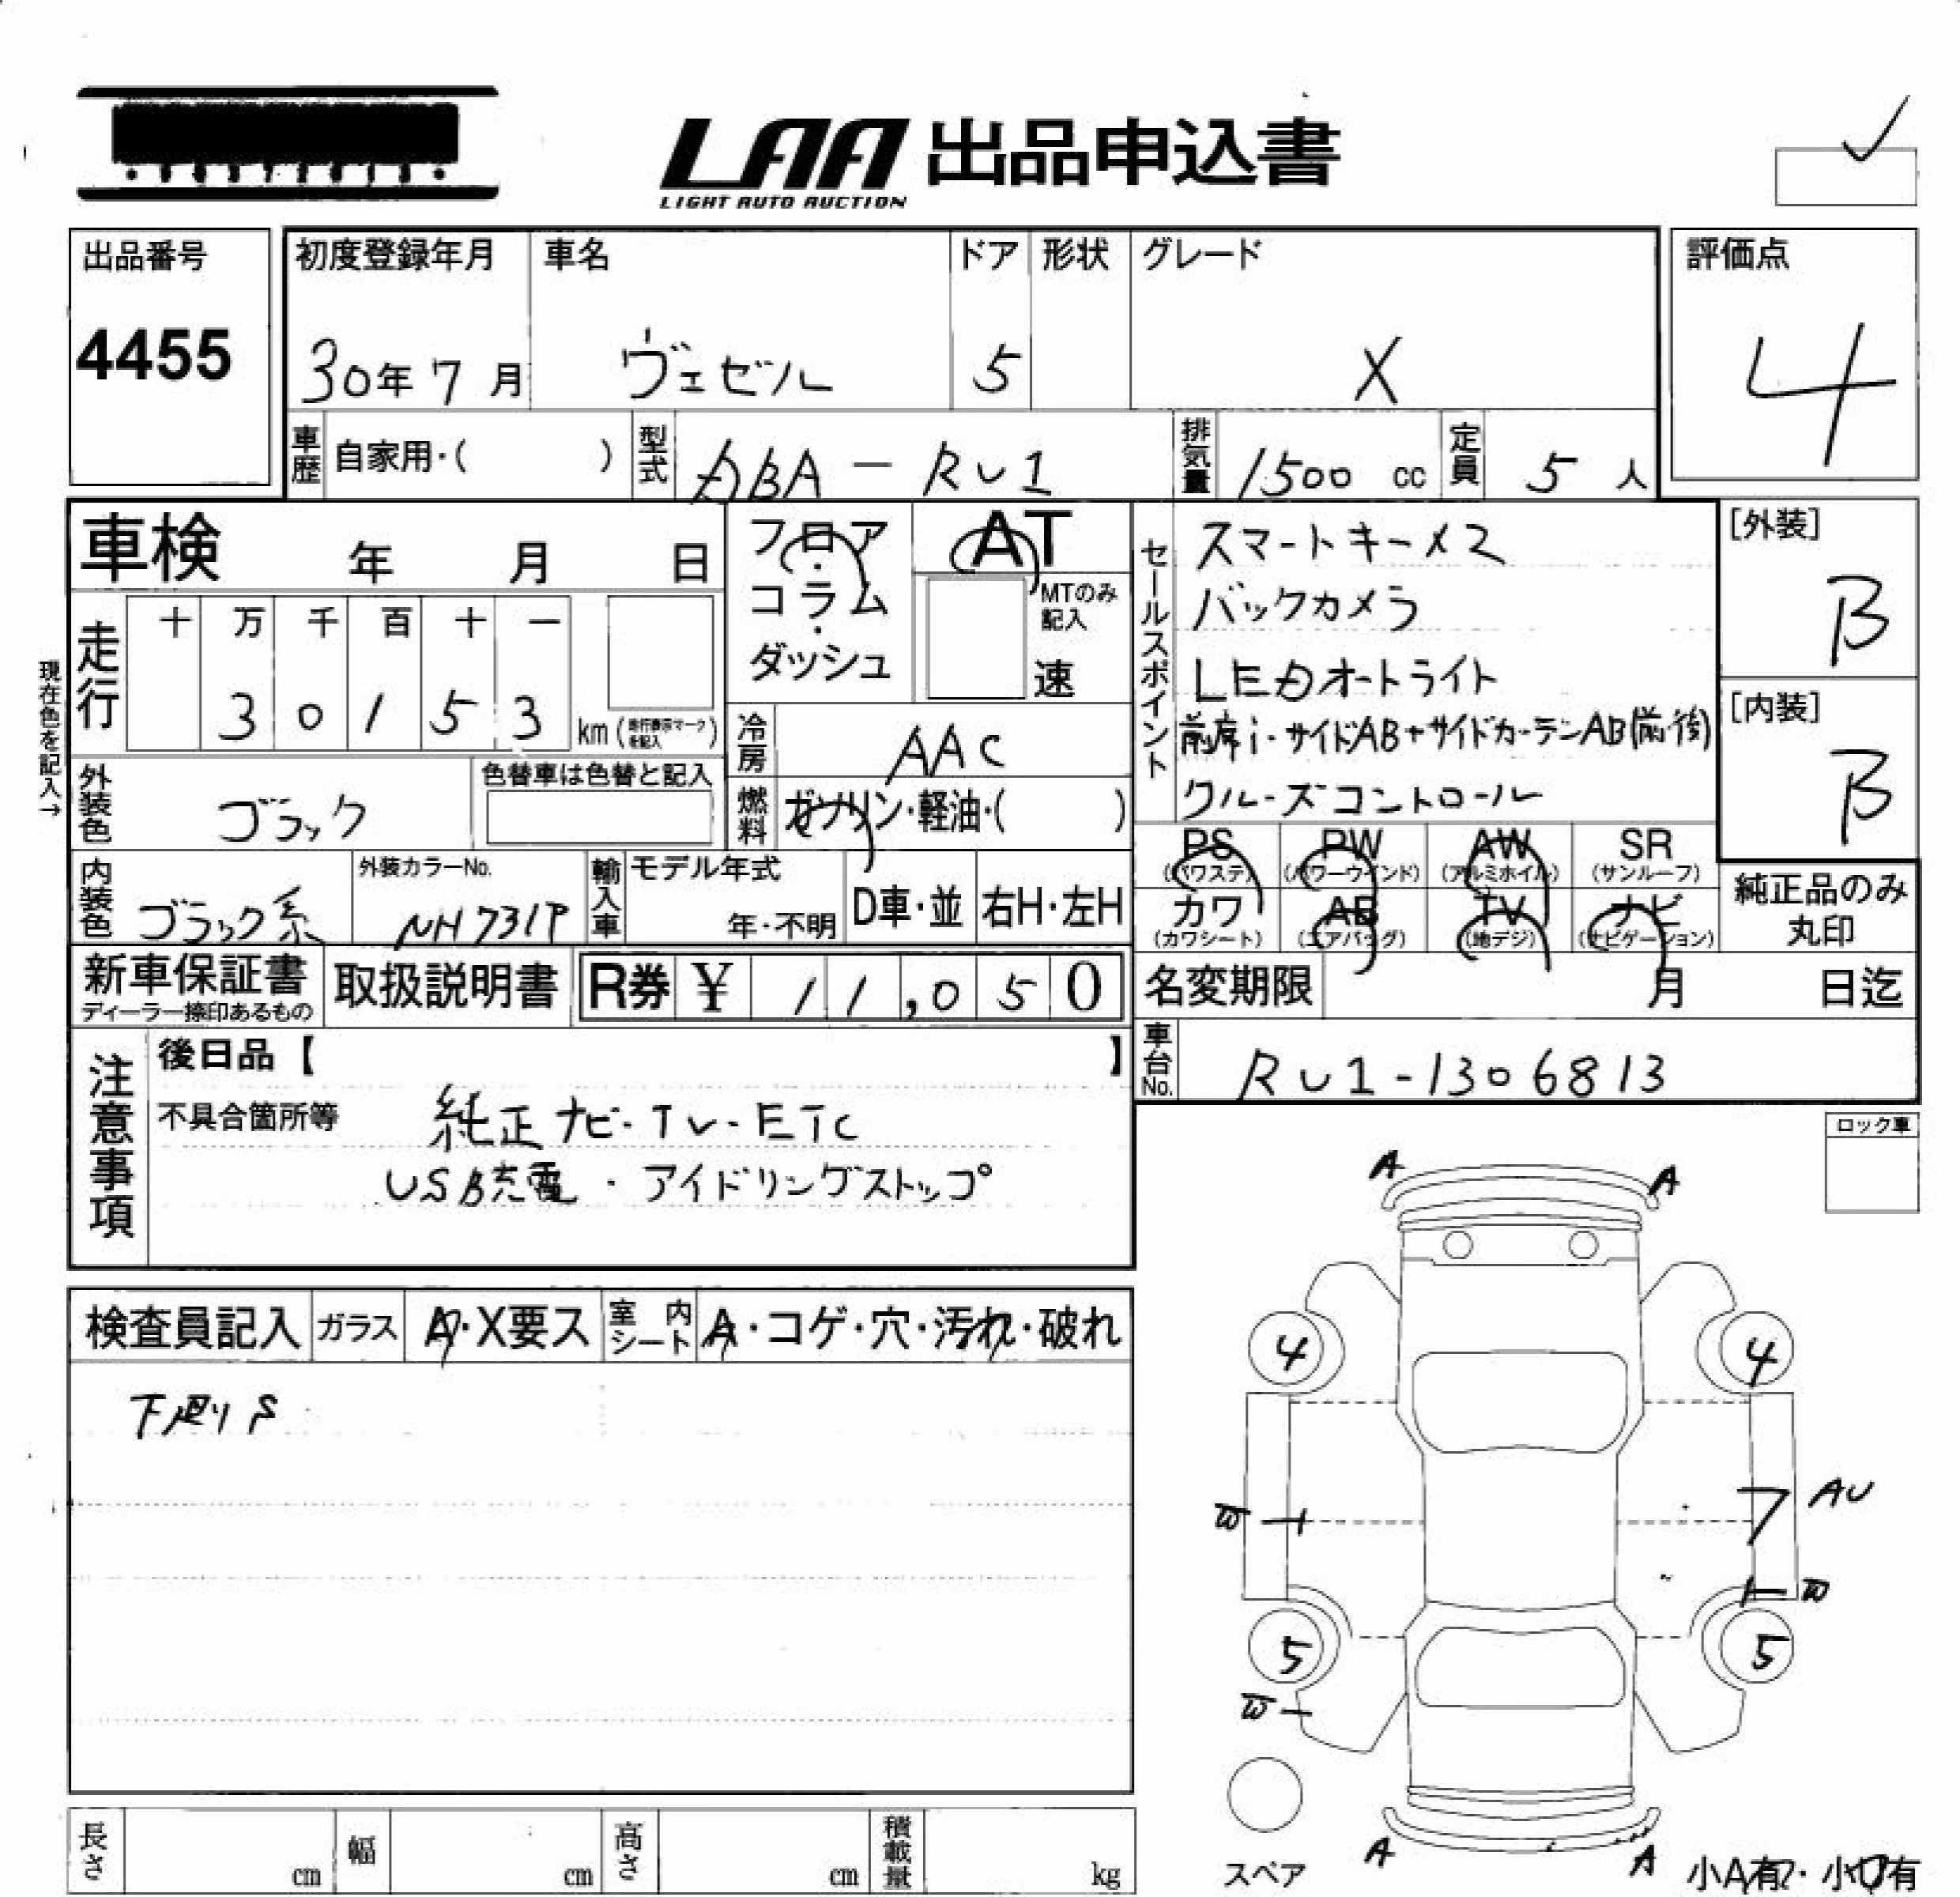 LAA 出品申込書
LIGHT AUTO AUCTION
出品番号
4455
初度登録年月
30年 7月
車名
ヴェゼル
ドア
5
形状
グレード
X
評価点
4
車歴
自家用・( )
型式
DBA-RU1
排気量
1500 cc
定員
5 人
車検 年 月 日
走行
十 万 千 百 十 一
3 0 1 5 3 km
現在色を記入→
外装色
ブラック
色替車は色替と記入
内装色
ブラック系
外装カラーNo.
NH731P
輸入車
モデル年式
年・不明
D車・並
右H・左H
フロア・コラム・ダッシュ
AT
MTのみ記入
速
冷房
AAC
燃料
ガソリン・軽油・( )
セールスポイント
スマートキーメ2
バックカメラ
LEDオートライト
前席i-サイドAB+サイドカーテンAB(前・後)
クルーズコントロール
[外装]
B
[内装]
B
PS
(パワステ)
PW
(パワーウインド)
AW
(アルミホイル)
SR
(サンルーフ)
カワ
(カワシート)
AB
(エアバッグ)
TV
(地デジ)
ナビ
(ナビゲーション)
純正品のみ
丸印
新車保証書
ディーラー捺印あるもの
取扱説明書
R券 ¥ 11,050
名変期限 月 日迄
車台No.
RU1-1306813
注意事項
後日品【 】
不具合箇所等
純正ナビ-TV-ETC
USB充電・アイドリングストップ
ロック車
検査員記入
ガラス
A・X要ス
室内シート
A・コゲ・穴・汚れ・破れ
下廻りS
A
A
4
4
AU
W
W
5
5
W
スペア
A
A
小A有・小U有
長さ cm
幅 cm
高さ cm
積載量 kg